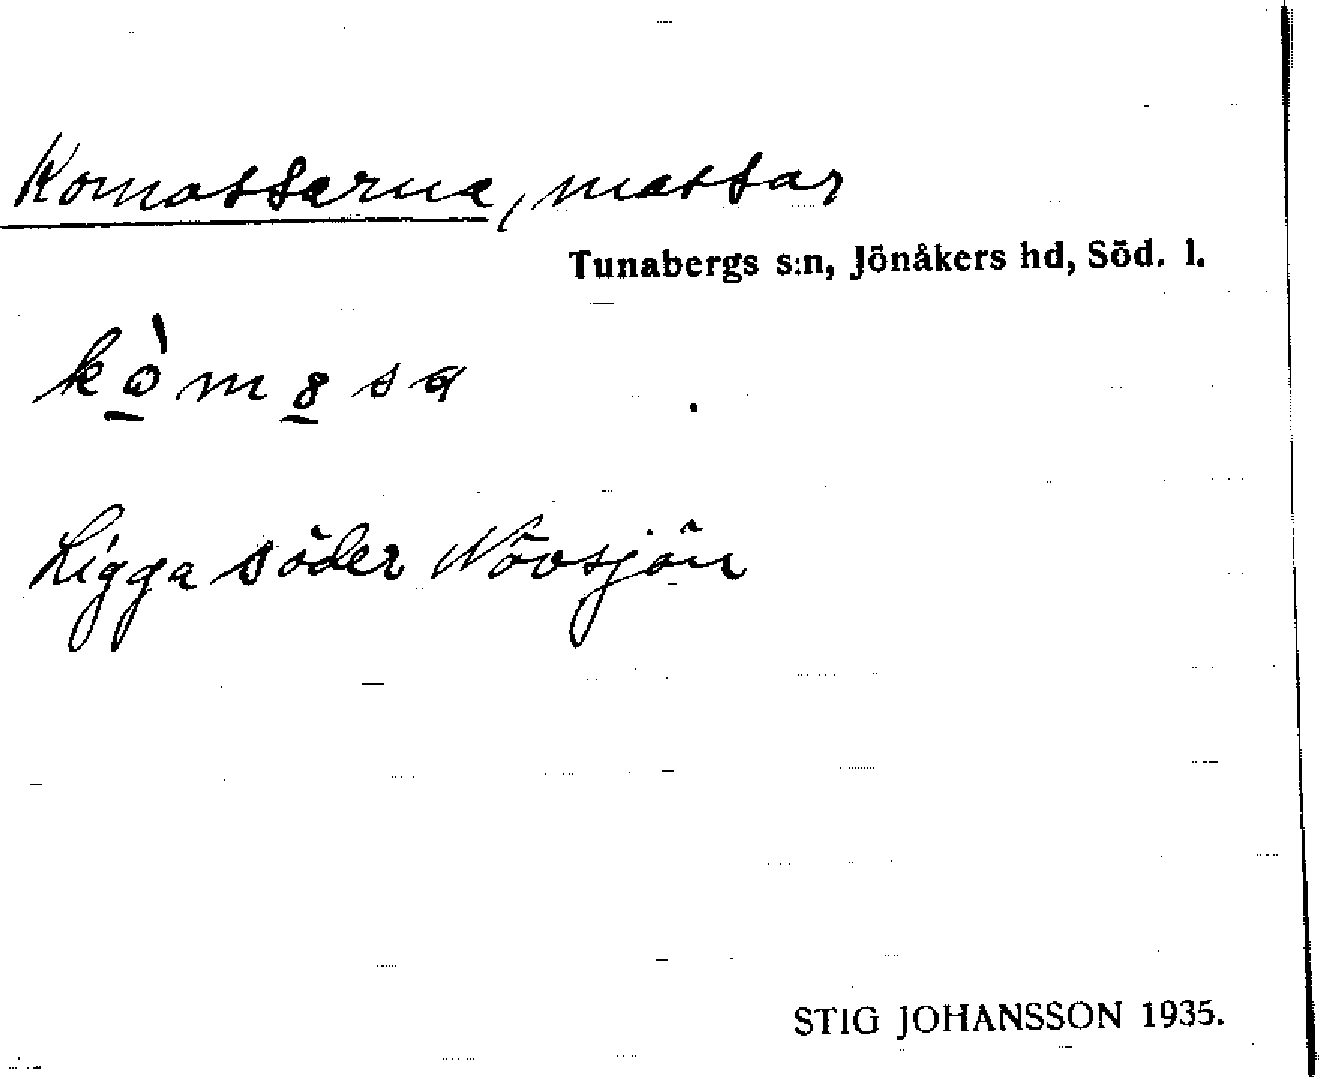 Komossarna, mossar
Tunabergs s:n, Jönåkers hd, Söd. l.
Ligga söder Növsjön
STIG JOHANSSON 1935.